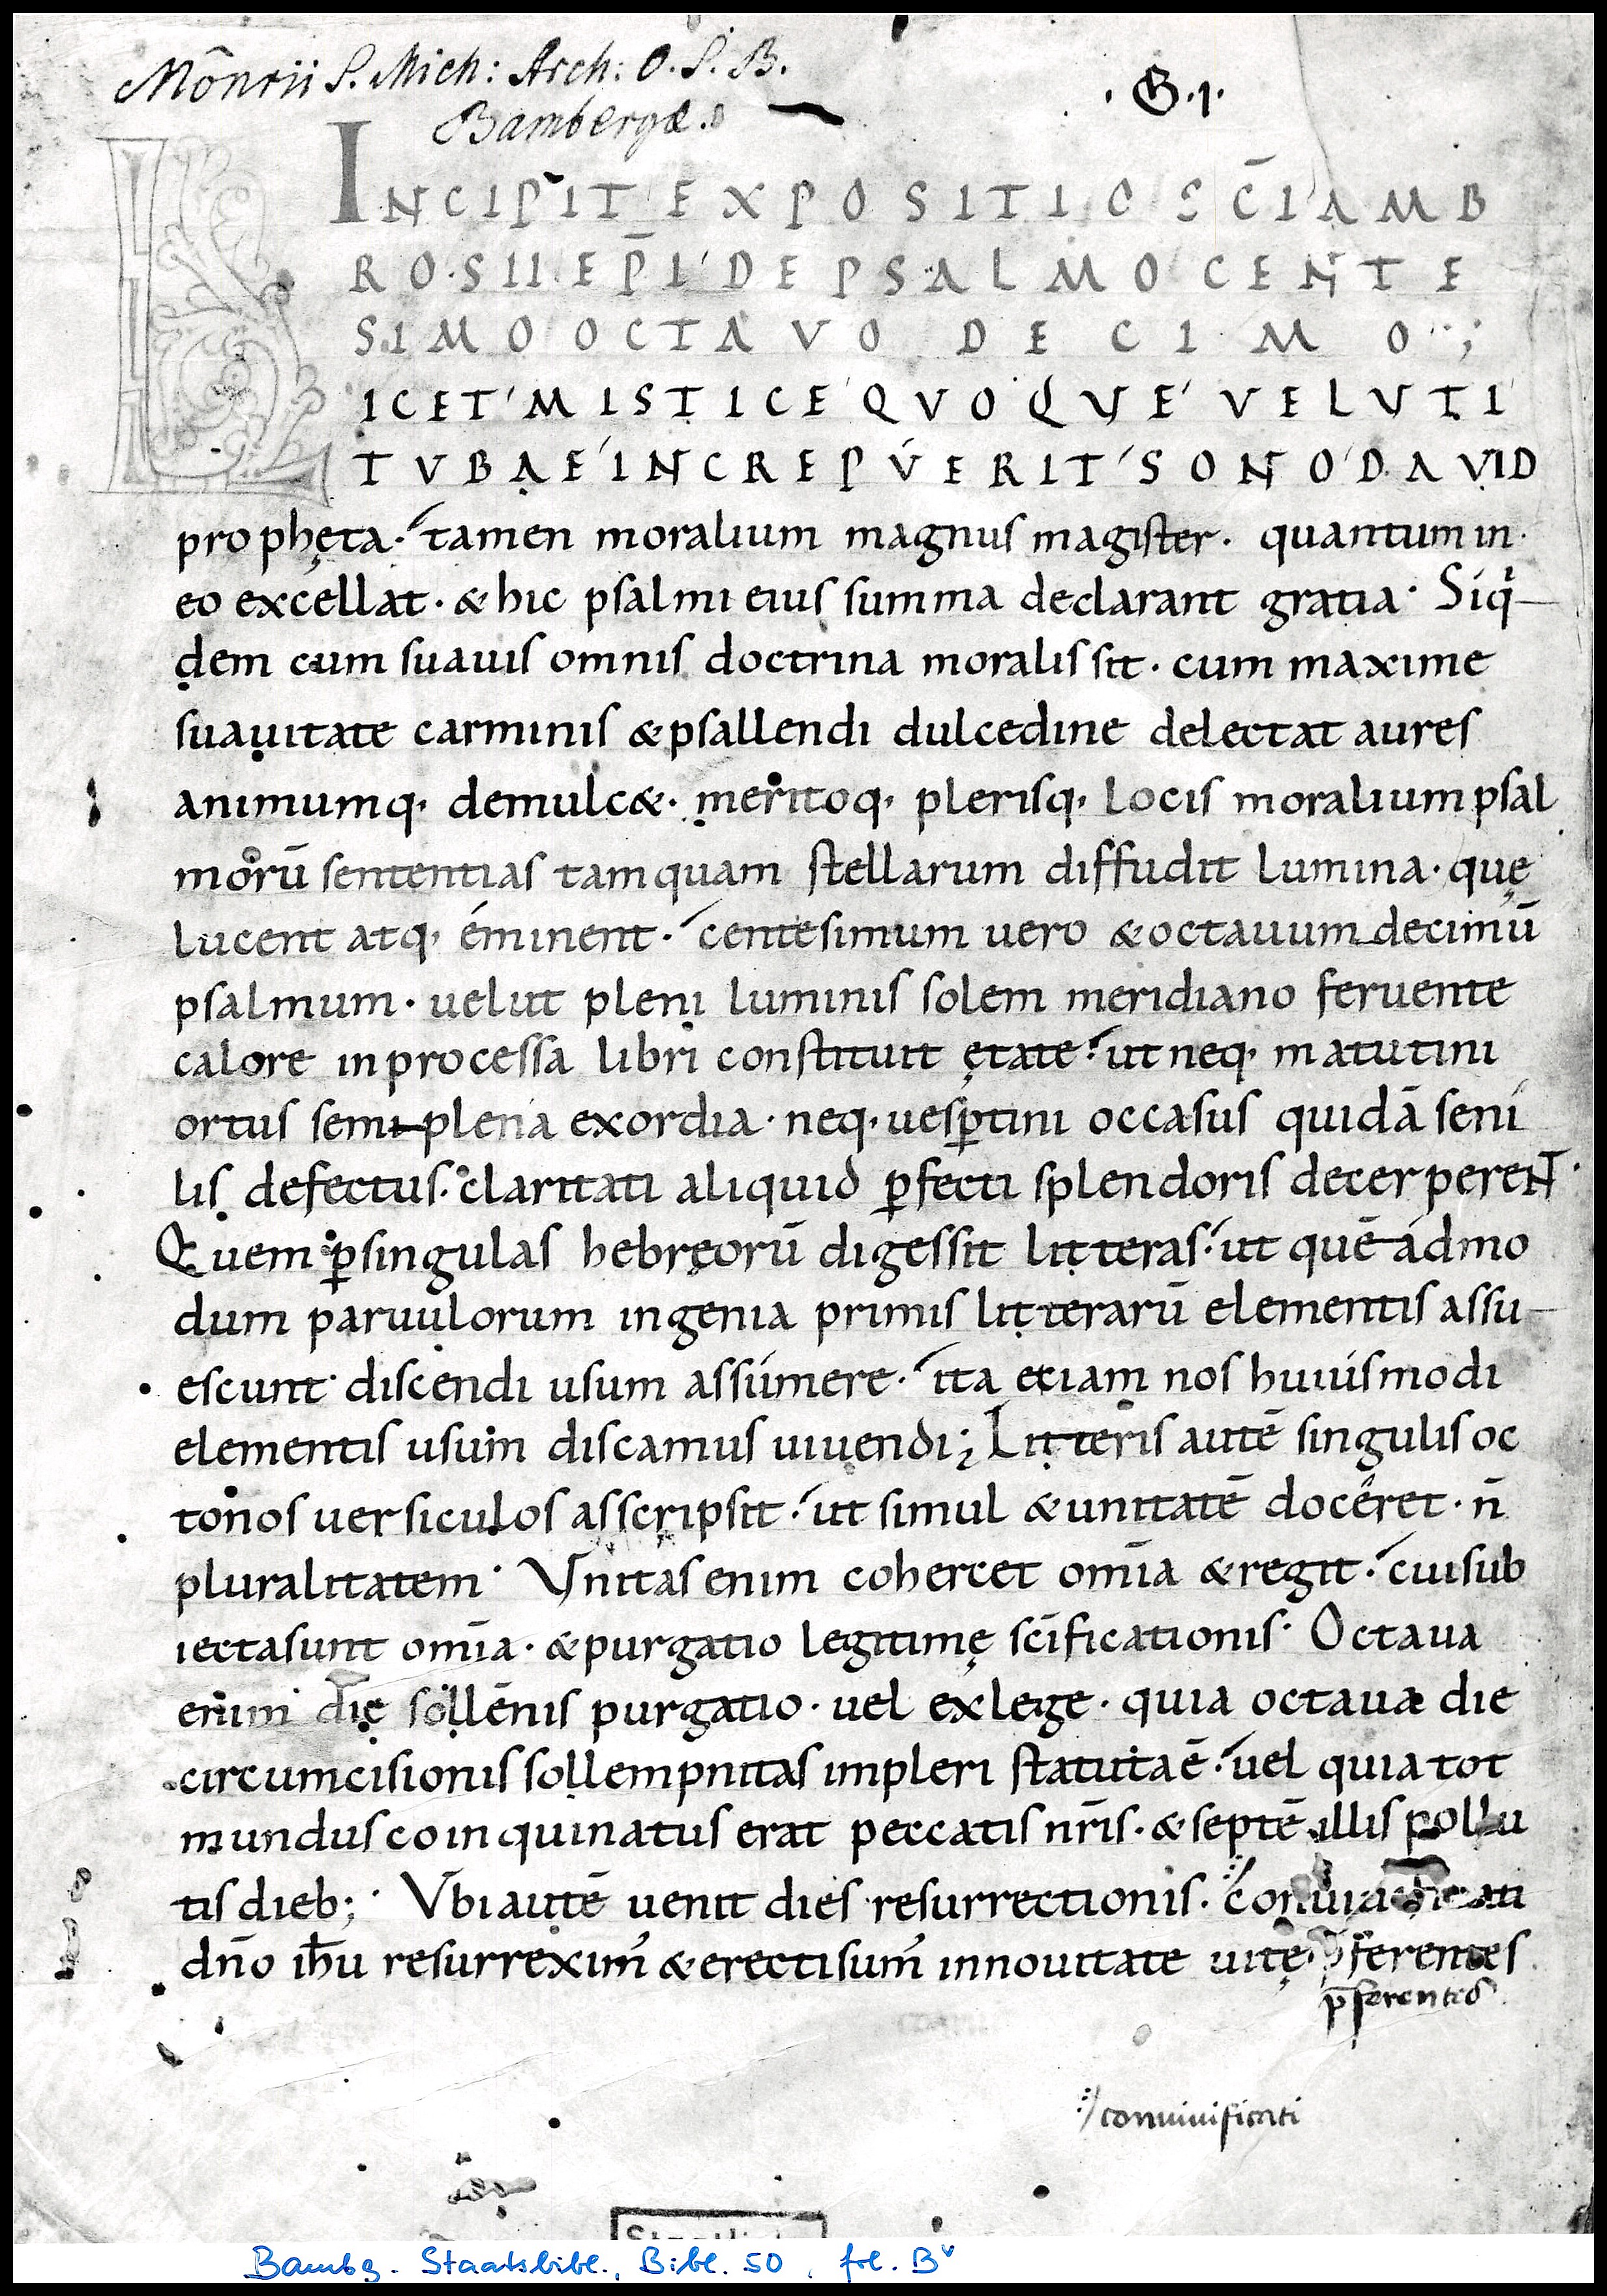 Môn̄rii S. Mich: Arch: O. S. B.
Bambergæ.
. G.1.
INCIPIT EXPOSITIO SC̄I AMB
ROSII EP̄I DE PSALMO CENTE
SIMO OCTAVO DECIMO·;
LICET MISTICE QVOQVE VELVTI
TVBAE INCREPVERIT SONO DAVID
prophęta· tamen moralium magnus magister· quantum in
eo excellat· & hic psalmi eius summa declarant gratia· Siqͥ
dem cum suauis omnis doctrina moralis sit· cum maxime
suauitate carminis & psallendi dulcedine delectat aures
animumq· demulc&· meritoq· plerisq· locis moralium psal
morū sententias tamquam stellarum diffudit lumina· quę
lucent atq· éminent· centesimum uero & octauum decimū
psalmum· uelut pleni luminis solem meridiano feruente
calore in processa libri constituit ętate· ut neq· matutini
ortus semi plena exordia· neq· uesꝑtini occasus quidā seni
lis defectus· claritati aliquid ꝑfecti splendoris decerperent·
Quem ꝑ singulas hebręorū digessit litteras· ut quē ádmo
dum paruulorum ingenia primis litterarū elementis assu
escunt discendi usum assúmere· ita etiam nos huiúsmodi
elementis usum discamus uiuendi; Litteris autē singulis oc
tonos uersiculos asscripsit· ut simul & unitatē doceret· n̄
pluralitatem· Vnitas enim cohercet om̄ia & regit· cui sub
iecta sunt om̄ia· & purgatio legitimę sc̄ificationis· Octaua
enim dię sollēnis purgatio· uel ex lege· quia octaua die
circumcisionis sollempnitas impleri statuta ē· uel quia tot
mundus coinquinatus erat peccatis nr̄is· & septē illis pollu
tis dieb;· Vbi autē uenit dies resurrectionis·
dn̄o ih̄u resurrexim᾽ & erecti sum᾽ in nouitate uitę p̄ferentes
p̄ferentes
conuiuificati
Bambg. Staatsbibl., Bibl. 50, fol. Bᵛ